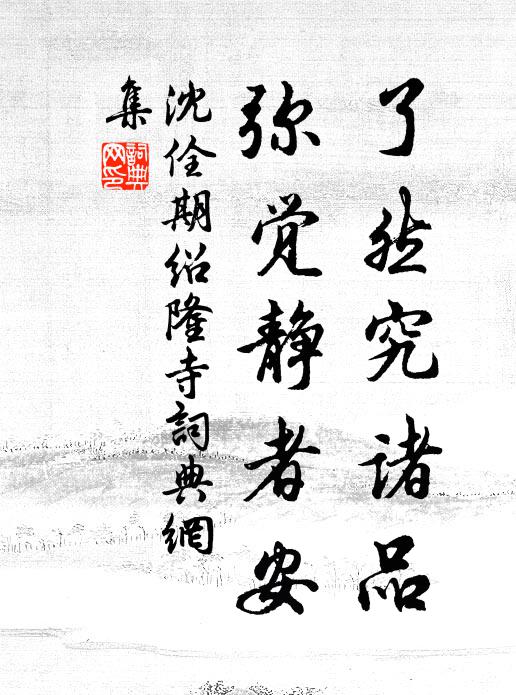 了然究诸品
弥觉静者安
沈佺期绍隆寺詞典網
集
詞典
网印